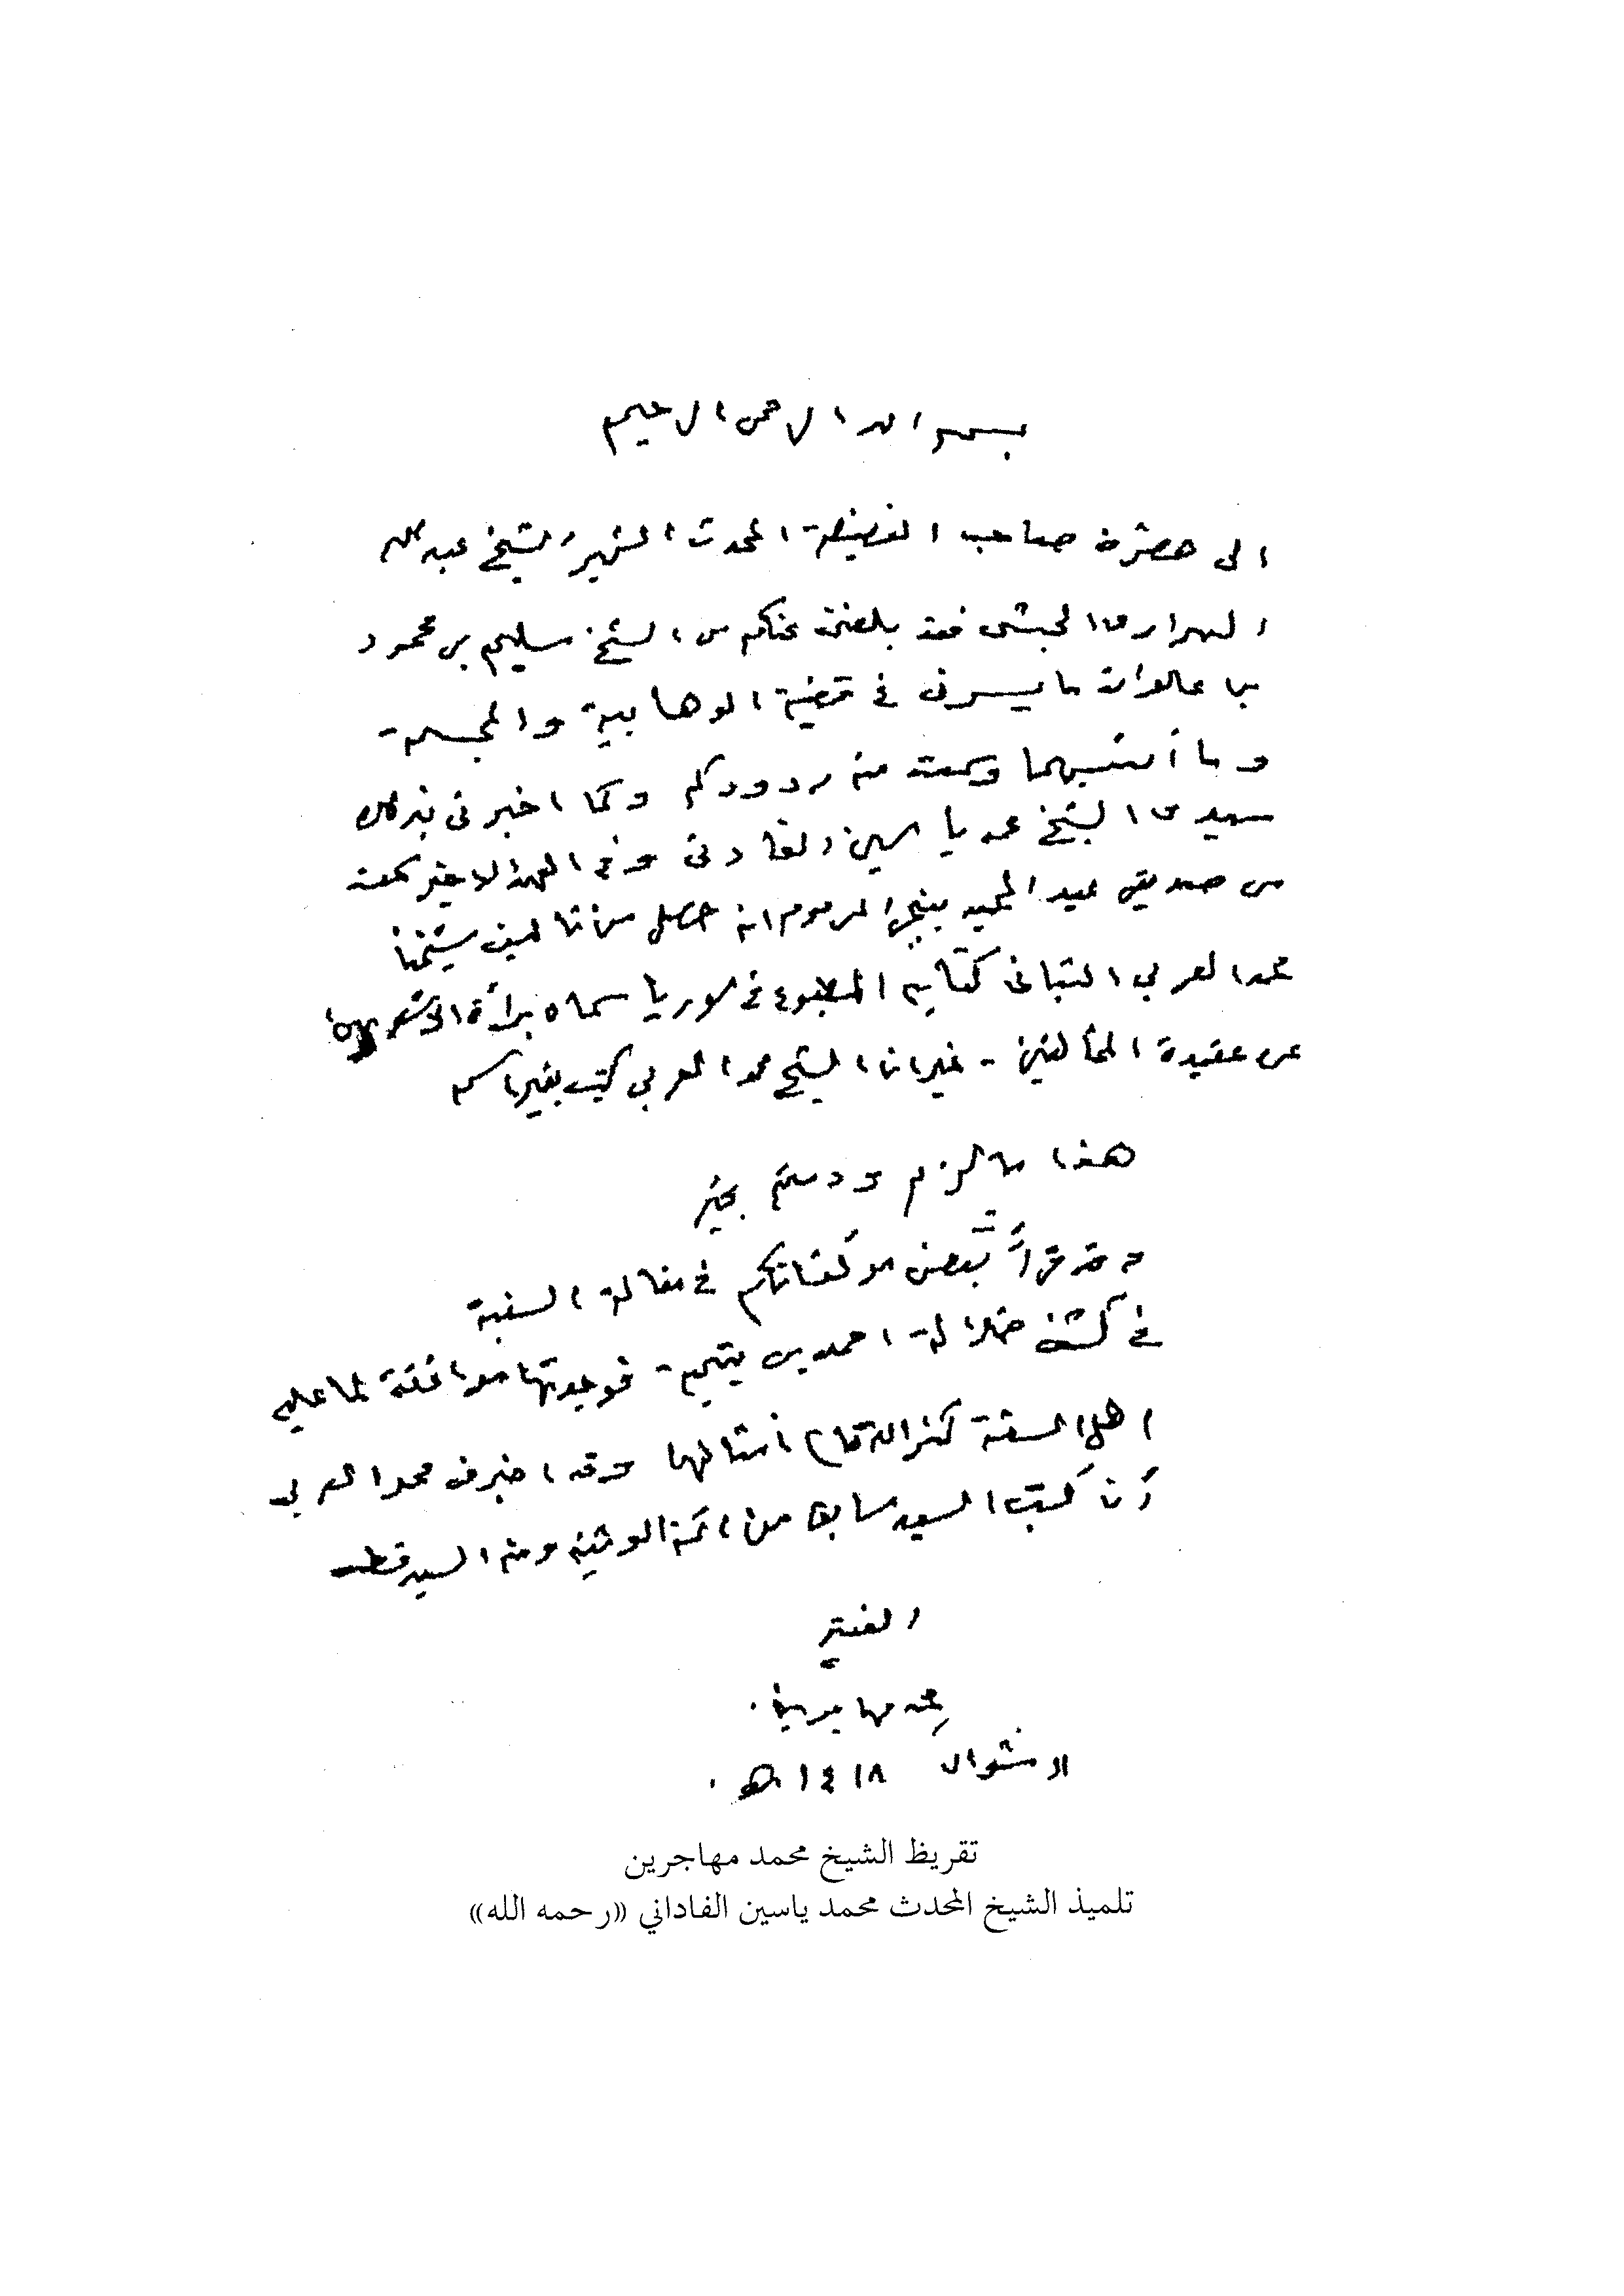 بسم الله الرحمن الرحيم
الى حضرة صاحب الفضيلة المحدث الشهير الشيخ عبد الله
الهرارى الحبشى فقد بلغنى عنكم من الشيخ سليم بن محمود
ما يسرنى فى قضية الوهابية والمجسمة
وما أشبههما وسمعت من ردودكم وكما اخبرنى بذلك
سيدى الشيخ محمد ياسين الفادنى وفى العهد الاخير سمعت
من صديقى عبد المجيد المرحوم انه حصل من تأليف شيخنا
محمد العربي التبانى كتابه المطبوع فى سوريا سماه براءة الأشعريين
عن عقيدة المخالفين - غير ان الشيخ محمد العربي كتب بغير اسمه
هذا ما لزم ودمتم بخير
وقد قرأتُ بعض مؤلفاتكم فى مقالات السنية
فى كشف ضلالة احمد بن تيمية - فوجدتها موافقة لما عليه
اهل السنة كثر الله أمثالها وقد اخبرنى محمد العربي
أن كتب السيد سابق من ائمة الوثنية ومنه السيد قطب
الفقير
محمد مهاجرين.
١١ شوال ١٤١٨ ه.
تقريظ الشيخ محمد مهاجرين
تلميذ الشيخ المحدث محمد ياسين الفاداني «رحمه الله»